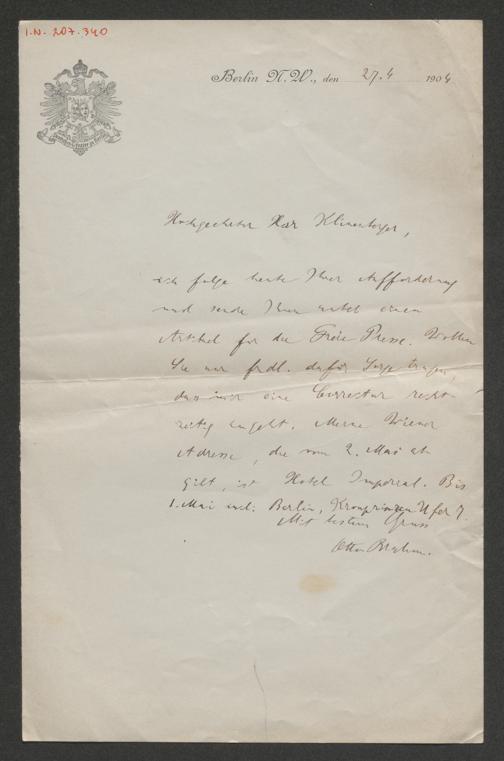 I.N. 207.340
Berlin N.W., den 27.4 1904
Hochgeehrter Herr Klinenberger,
ich folge heute Ihrer Aufforderung
und sende Ihnen anbei einen
Artikel für die Freie Presse. Wollen
Sie nur frdl. dafür Sorge tragen,
dass mir eine Correctur recht-
zeitig zugeht. Meine Wiener
Adresse, die vom 2. Mai ab
gilt, ist Hotel Imperial. Bis
1. Mai incl: Berlin, Kronprinzen Ufer 7.
Mit bestem Gruss
Otto Brahm.